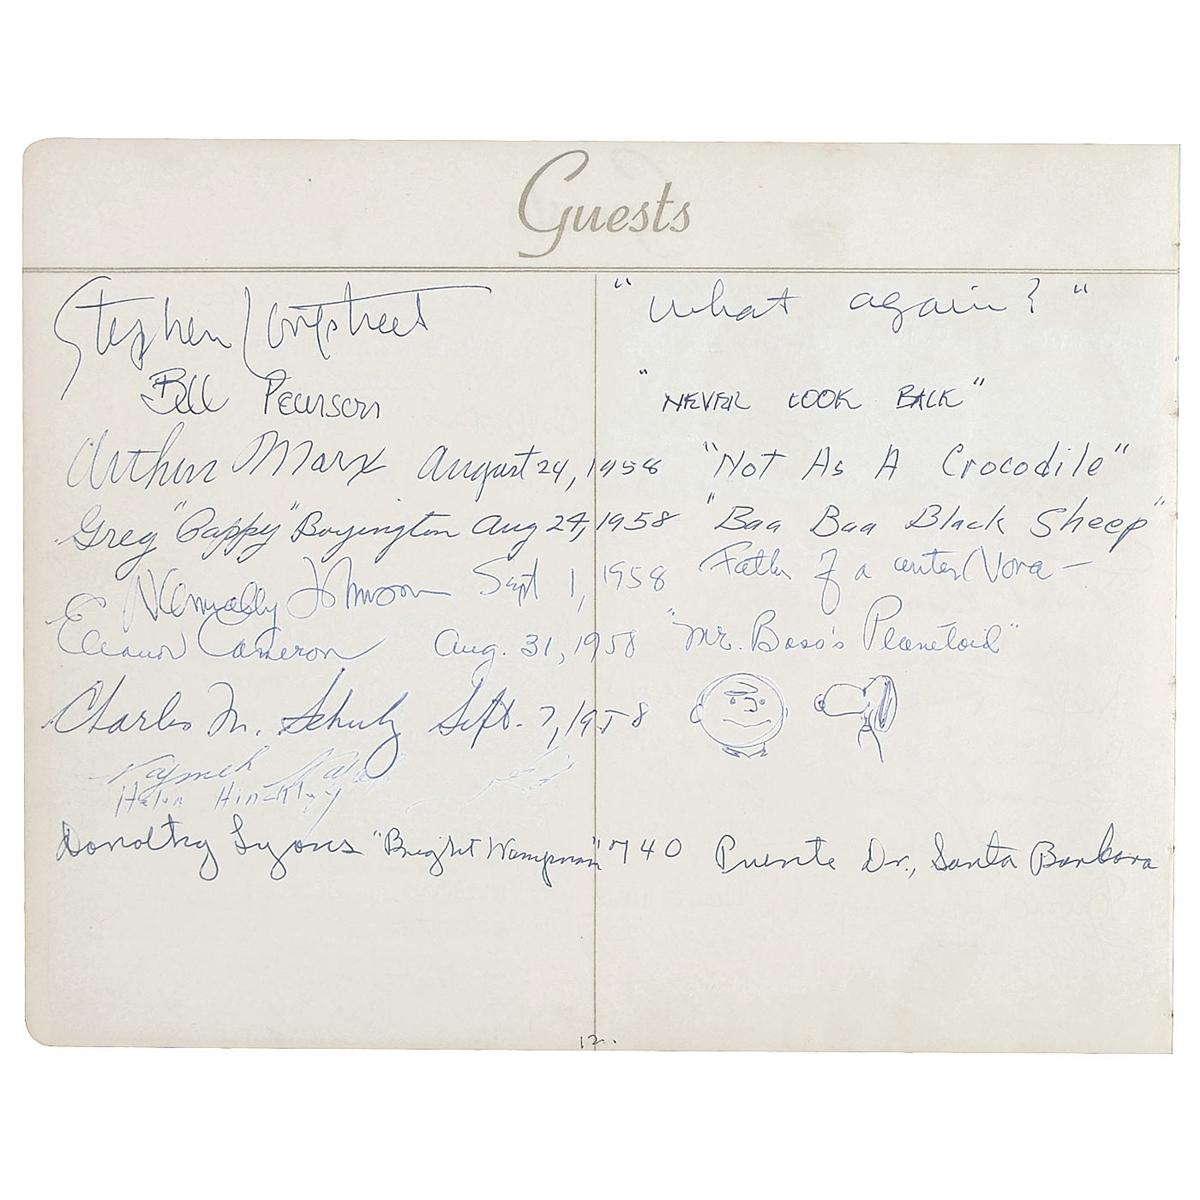 Guests
Stephen Longstreet "What again?"
Bill Pearson "NEVER LOOK BACK"
Arthur Marx August 24, 1958 "Not As A Crocodile"
Greg "Pappy" Boyington Aug 24, 1958 "Baa Baa Black Sheep"
Nunnally Johnson Sept 1, 1958 Father of a writer Nora -
Eleanor Cameron Aug. 31, 1958 "Mr. Bass's Planetoid"
Charles M. Schulz Sept. 7, 1958
Helen Hinckley
Dorothy Lyons "Bright Wampum" 740 Puente Dr., Santa Barbara
12.